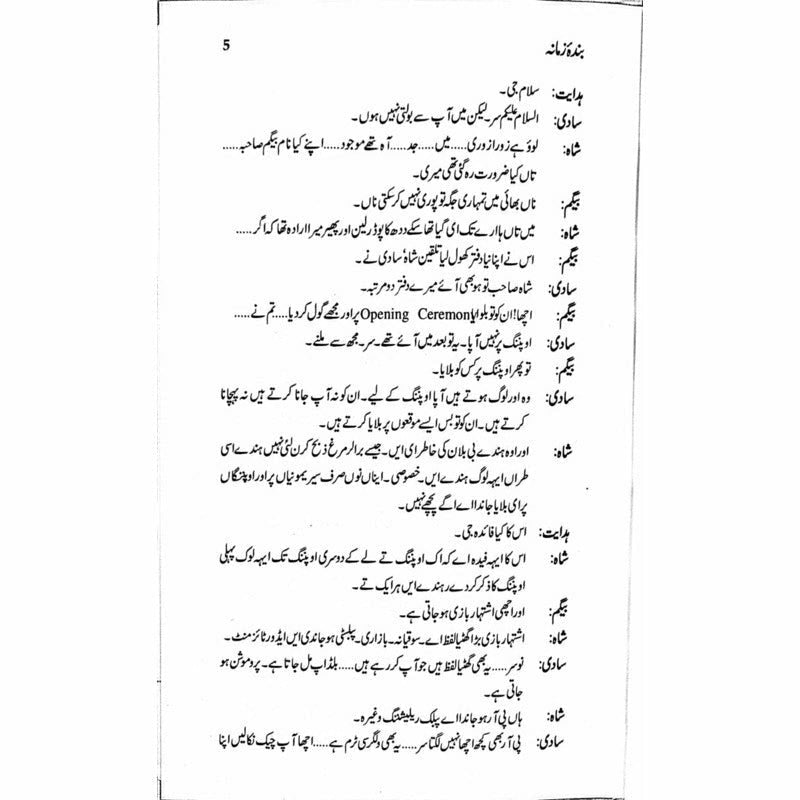 بندۂ زمانہ 5
ہدایت: سلام جی۔
سادی: السلام علیکم سر۔ لیکن میں آپ سے بولتی نہیں ہوں۔
شاہ: لوؤ ہے زورا زوری.....میں.....جد.....آہ تھے موجود.....اپنے کیا نام بیگم صاحبہ.....
تاں کیا ضرورت رہ گئی تھی میری۔
بیگم: ناں بھائی میں تمہاری جگہ تو پوری نہیں کر سکتی ناں۔
شاہ: میں تاں ہارے تک ای گیا تھا سکے ددھ کا پوڈر لین اور پھیر میرا ارادہ تھا کہ اگر.....
بیگم: اس نے اپنا نیا دفتر کھول لیا تلقین شاہ سادی نے۔
سادی: شاہ صاحب تو ہو بھی آئے میرے دفتر دو مرتبہ۔
بیگم: اچھا! ان کو تو بلوایا Opening Ceremony پر اور مجھے گول کر دیا.....تم نے.....
سادی: اوپننگ پر نہیں آپا۔ یہ تو بعد میں آئے تھے۔ سر۔ مجھ سے ملنے۔
بیگم: تو پھر اوپننگ پر کس کو بلایا۔
سادی: وہ اور لوگ ہوتے ہیں آپا اوپننگ کے لیے۔ ان کو نہ آپ جانا کرتے ہیں نہ پہچانا
کرتے ہیں۔ ان کو تو بس ایسے موقعوں پر بلایا کرتے ہیں۔
شاہ: اور اوہ ہندے ہی بلان کی خاطر ای ایں۔ جیسے برالر مرغ ذبح کرن لئی نہیں ہندے اسی
طراں ایہہ لوگ ہندے ایں۔ خصوصی۔ ایناں نوں صرف سیریمونیاں پر اور اوپننگاں
پر ای بلایا جاندا اے اگے پچھے نہیں۔
ہدایت: اس کا کیا فائدہ جی۔
شاہ: اس کا ایہہ فیدہ اے کہ اک اوپننگ تے لے کے دوسری اوپننگ تک ایہہ لوک پہلی
اوپننگ کا ذکر کردے رہندے ایں ہر ایک تے۔
بیگم: اور اچھی اشتہار بازی ہو جاتی ہے۔
شاہ: اشتہار بازی بڑا گھٹیا لفظ اے۔ سوقیانہ۔ بازاری۔ پبلسٹی ہو جاندی ایں ایڈورٹائزمنٹ۔
سادی: نو سر.....یہ بھی گھٹیا لفظ ہیں جو آپ کر رہے ہیں.....بلڈ اپ مل جاتا ہے۔ پروموشن ہو
جاتی ہے۔
شاہ: ہاں پی آر ہو جاندا اے پبلک ریلیشننگ وغیرہ۔
سادی: پی آر بھی کچھ اچھا نہیں لگتا سر.....یہ بھی ولگر سی ٹرم ہے.....اچھا آپ چیک نکالیں اپنا